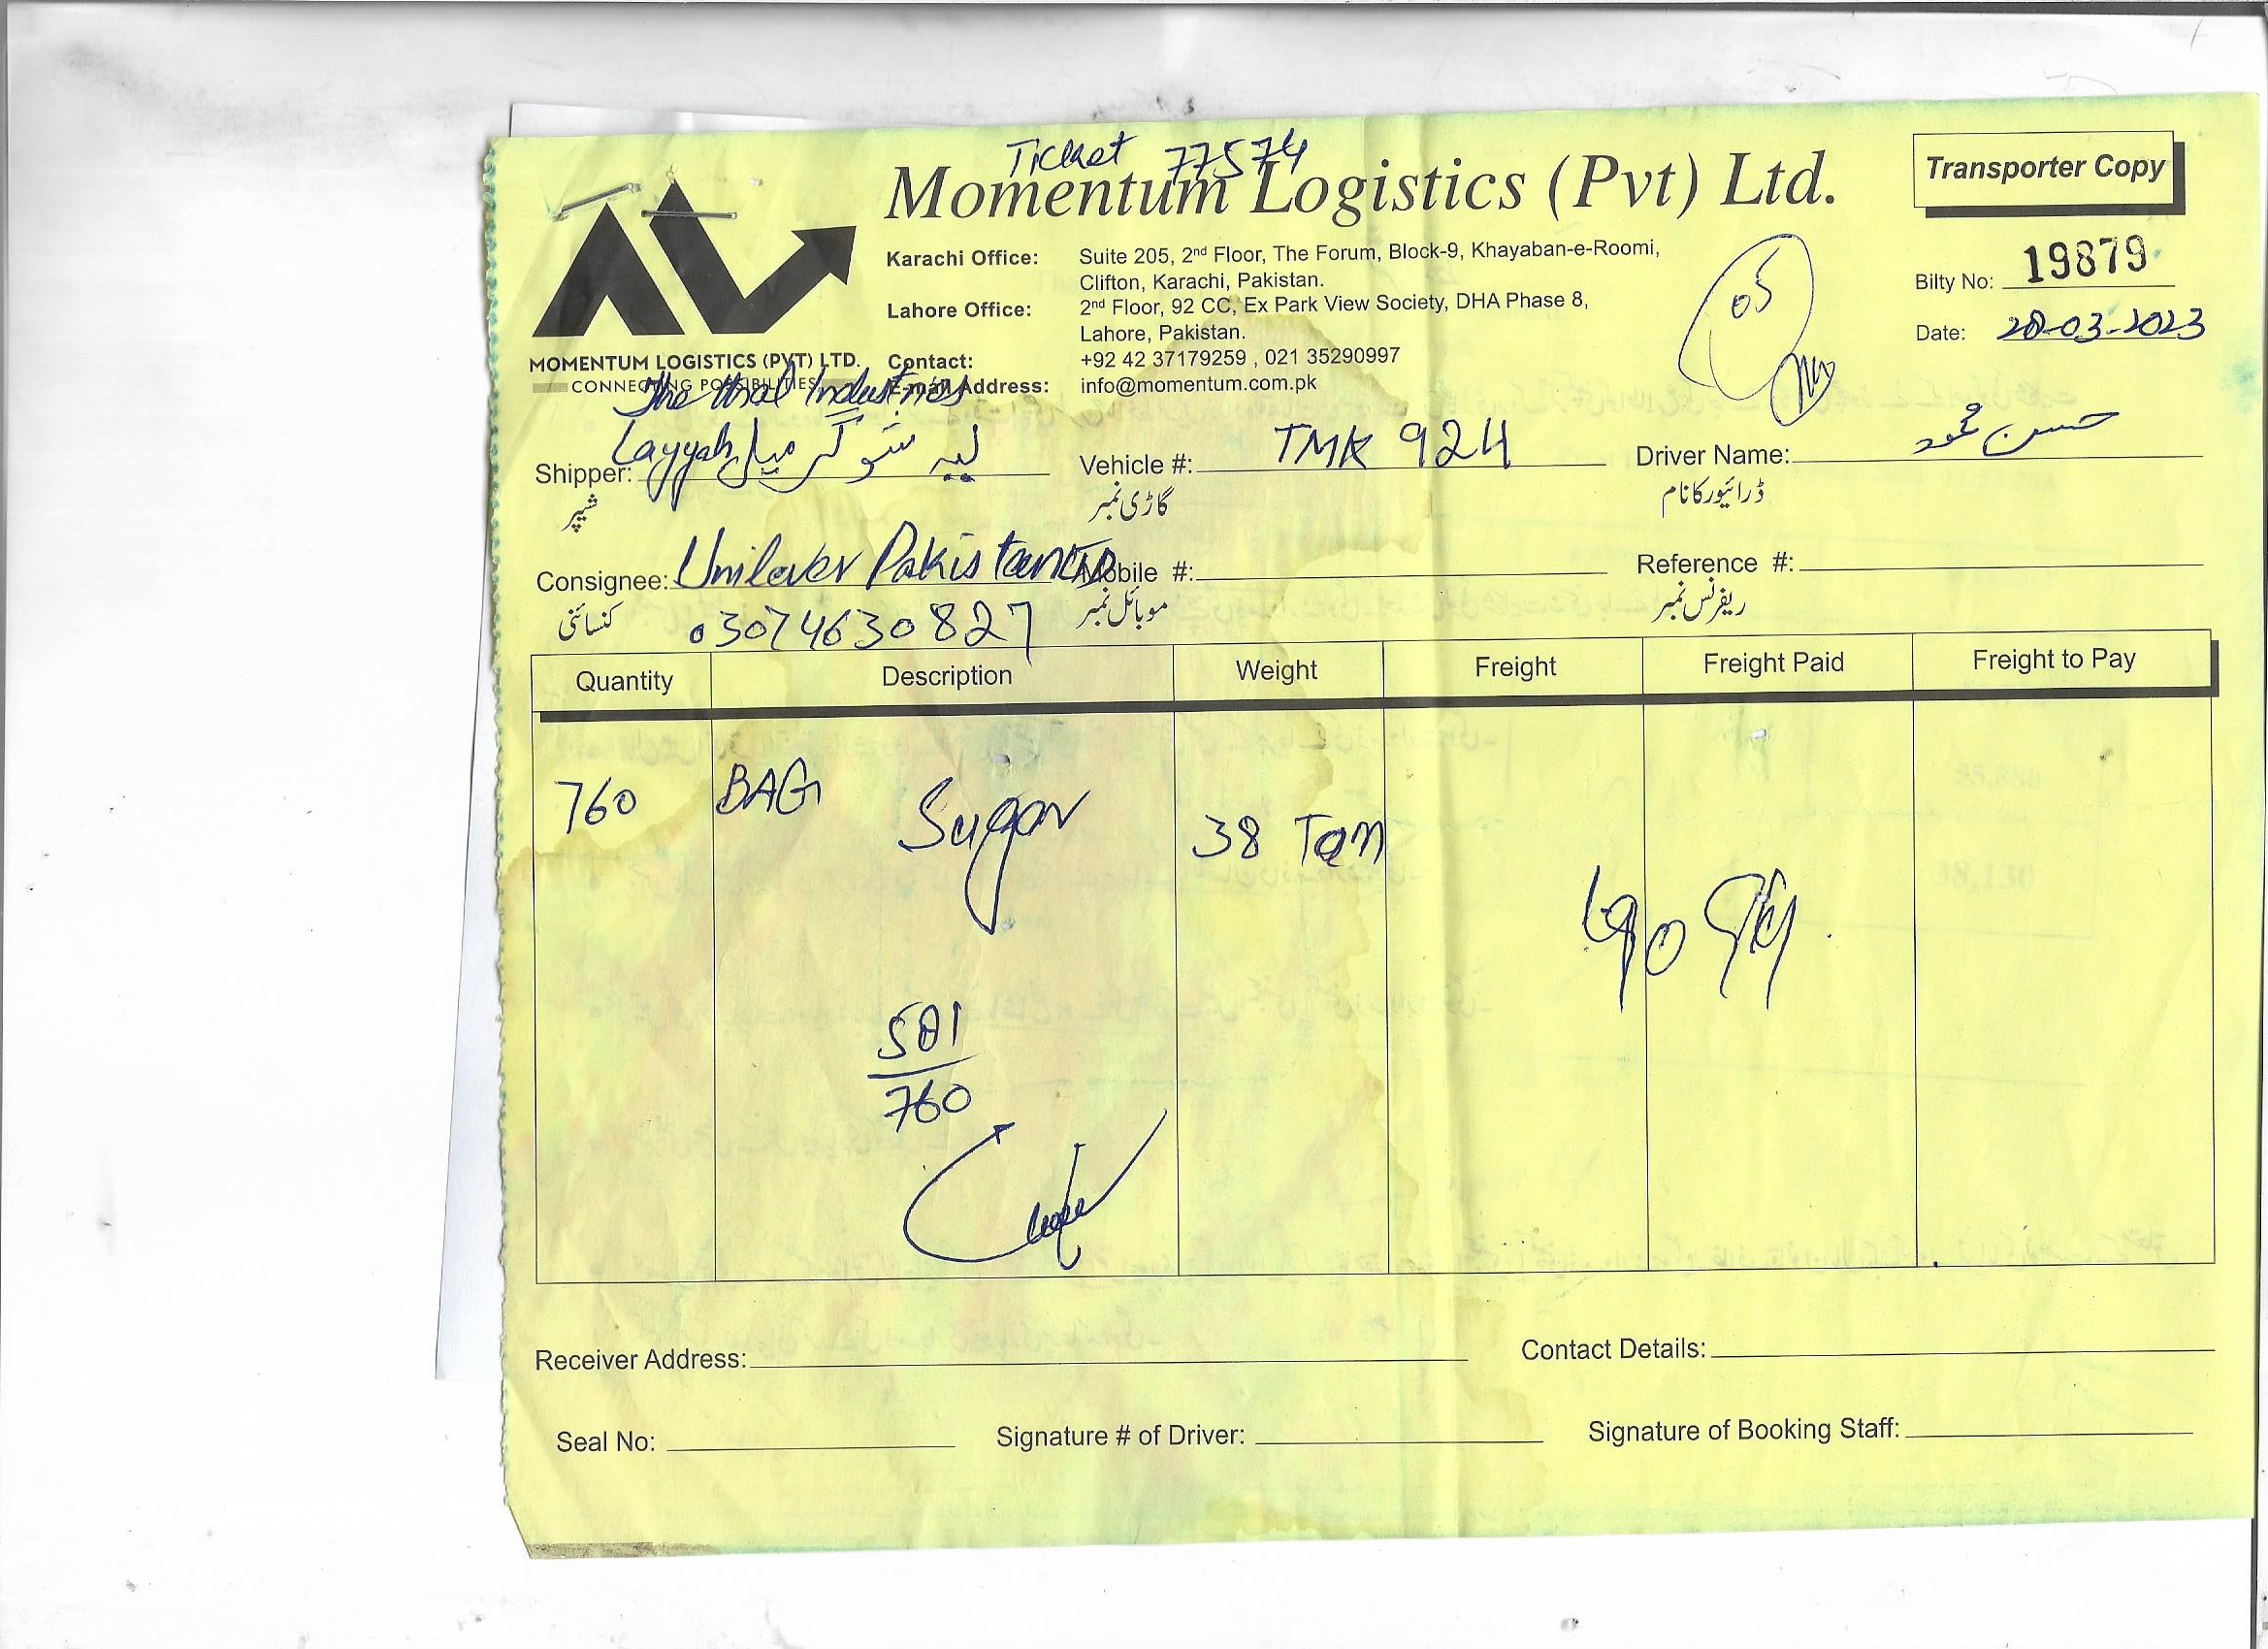 Ticket 77574
Momentum Logistics (Pvt) Ltd.
Transporter Copy
Karachi Office: Suite 205, 2nd Floor, The Forum, Block-9, Khayaban-e-Roomi,
Clifton, Karachi, Pakistan.
Lahore Office: 2nd Floor, 92 CC, Ex Park View Society, DHA Phase 8,
Lahore, Pakistan.
Contact: +92 42 37179259 , 021 35290997
E-mail Address: info@momentum.com.pk
MOMENTUM LOGISTICS (PVT) LTD.
CONNECTING POSSIBILITIES
05
Bilty No: 19879
Date: 28-03-2023
The thal Industries
Layyah لیہ شوگر میل
Shipper:
شیپر
Vehicle #: TMK 924
گاڑی نمبر
Driver Name: حسن محمود
ڈرائیور کا نام
Consignee: Unilever Pakistan LTD
کنسائنی
03074630827
Mobile #:
موبائل نمبر
Reference #:
ریفرنس نمبر
Quantity Description Weight Freight Freight Paid Freight to Pay
760 BAG Sugar 38 Tan
501
760
Receiver Address:
Contact Details:
Seal No:
Signature # of Driver:
Signature of Booking Staff: